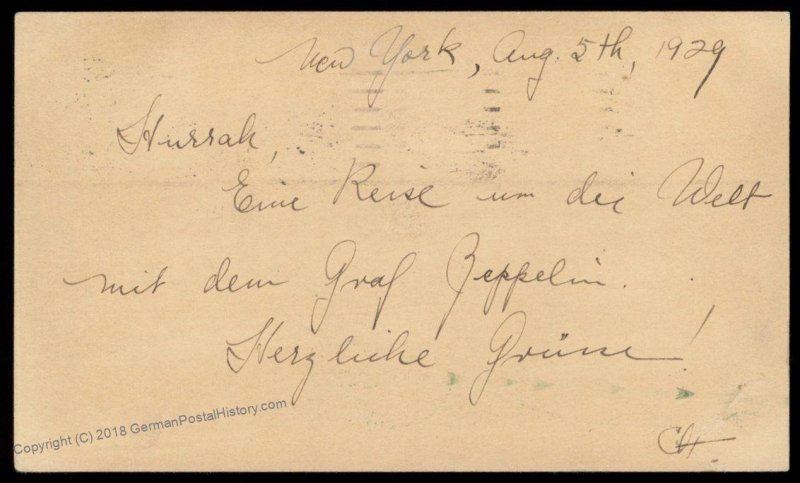 New York, Aug. 5th, 1929
Hurrah,
Eine Reise um die Welt
mit dem Graf Zeppelin.
Herzliche Grüsse!
Copyright (C) 2018 GermanPostalHistory.com